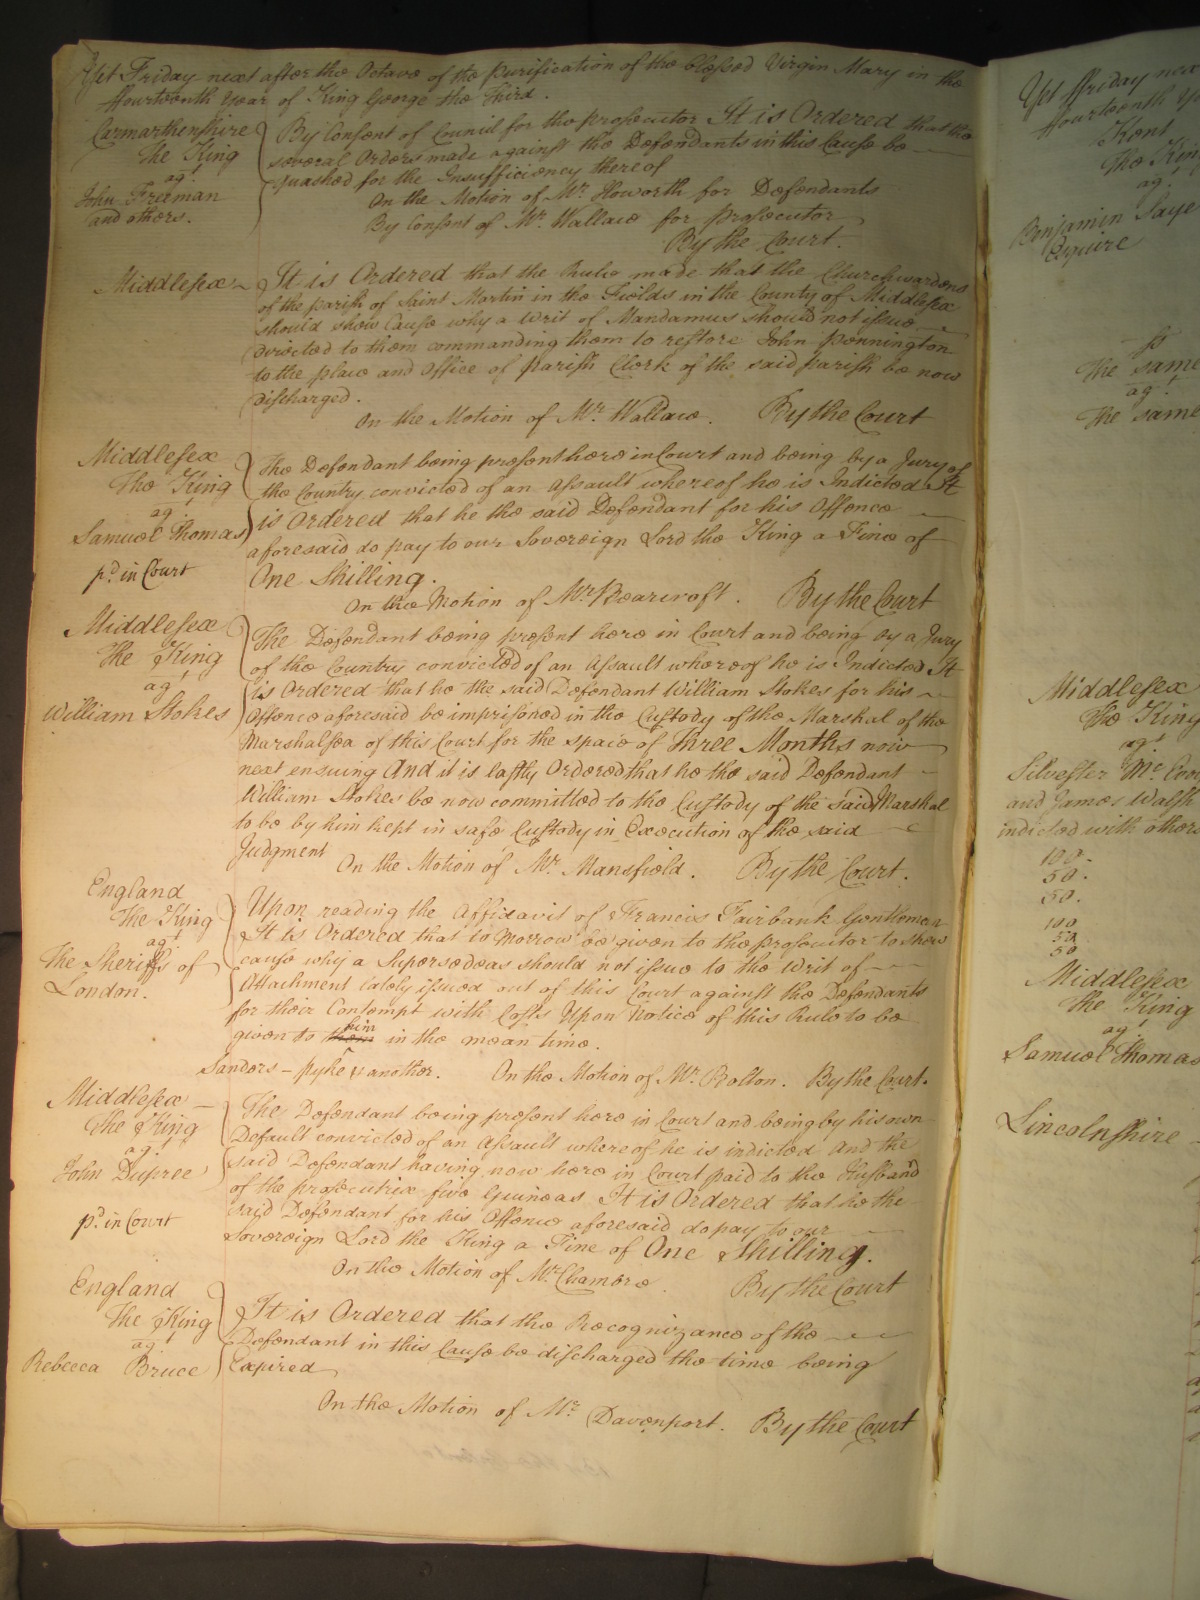 Yet Friday next after the Octave of the Purification of the blessed Virgin Mary in the
ffourteenth Year of King George the Third.
Carmarthenshire
The King
agt
John Freeman
and others.
By Consent of Council for the prosecutor It is Ordered that the
several Orders made against the Defendants in this Cause be
quashed for the Insufficiency thereof
On the Motion of Mr. Howorth for Defendants
By Consent of Mr. Wallace for prosecutor
By the Court.
Middlesex
It is Ordered that the Rule made that the Churchwardens
of the parish of Saint Martin in the Fields in the County of Middlesex
should show Cause why a Writ of Mandamus should not issue
directed to them commanding them to restore John Pennington
to the place and Office of Parish Clerk of the said parish be now
discharged.
On the Motion of Mr. Wallace. By the Court
Middlesex
The King
agt
Samuel Thomas
pd. in Court
The Defendant being present here in Court and being by a Jury of
the Country convicted of an Assault whereof he is Indicted It
is Ordered that he the said Defendant for his Offence
aforesaid do pay to our Sovereign Lord the King a Fine of
One Shilling.
On the Motion of Mr. Bearcroft. By the Court
Middlesex
The King
agt
William Stokes
The Defendant being present here in Court and being by a Jury
of the Country convicted of an Assault whereof he is Indicted It
is Ordered that he the said Defendant William Stokes for his
Offence aforesaid be imprisoned in the Custody of the Marshal of the
Marshalsea of this Court for the space of Three Months now
next ensuing And it is lastly Ordered that he the said Defendant
William Stokes be now committed to the Custody of the said Marshal
to be by him kept in safe Custody in Execution of the said
Judgment
On the Motion of Mr. Mansfield. By the Court.
England
The King
agt
The Sheriffs of
London.
Upon reading the Affidavit of Francis Fairbank Gentleman
It is Ordered that to Morrow be given to the prosecutor to shew
cause why a Supersedeas should not issue to the Writ of
Attachment lately issued out of this Court against the Defendants
for their Contempt with Costs Upon Notice of this Rule to be
given to them him in the mean time.
Sanders - Pyke & another. On the Motion of Mr. Rolton. By the Court.
Middlesex
The King
agt
John Dupree
pd. in Court
The Defendant being present here in Court and being by his own
Default convicted of an Assault whereof he is indicted And the
said Defendant having now here in Court paid to the Husband
of the prosecutrix five Guineas It is Ordered that he the
said Defendant for his Offence aforesaid do pay to our
Sovereign Lord the King a Fine of One Shilling.
On the Motion of Mr. Chambre. By the Court
England
The King
agt
Rebecca Bruce
It is Ordered that the Recognizance of the
Defendant in this Cause be discharged the time being
Expired
On the Motion of Mr. Davenport. By the Court
Yet ffriday nex
ffourteenth Y
Kent
The Kin
agt
Benjamin Saye
Esquire
The same
agt
The same
Middlesex
The King
agt
Silvester Mc
and James Walsh
indicted with others
100.
50.
50.
100
50
50
Middlesex
The King
agt
Samuel Thomas
Lincolnshire